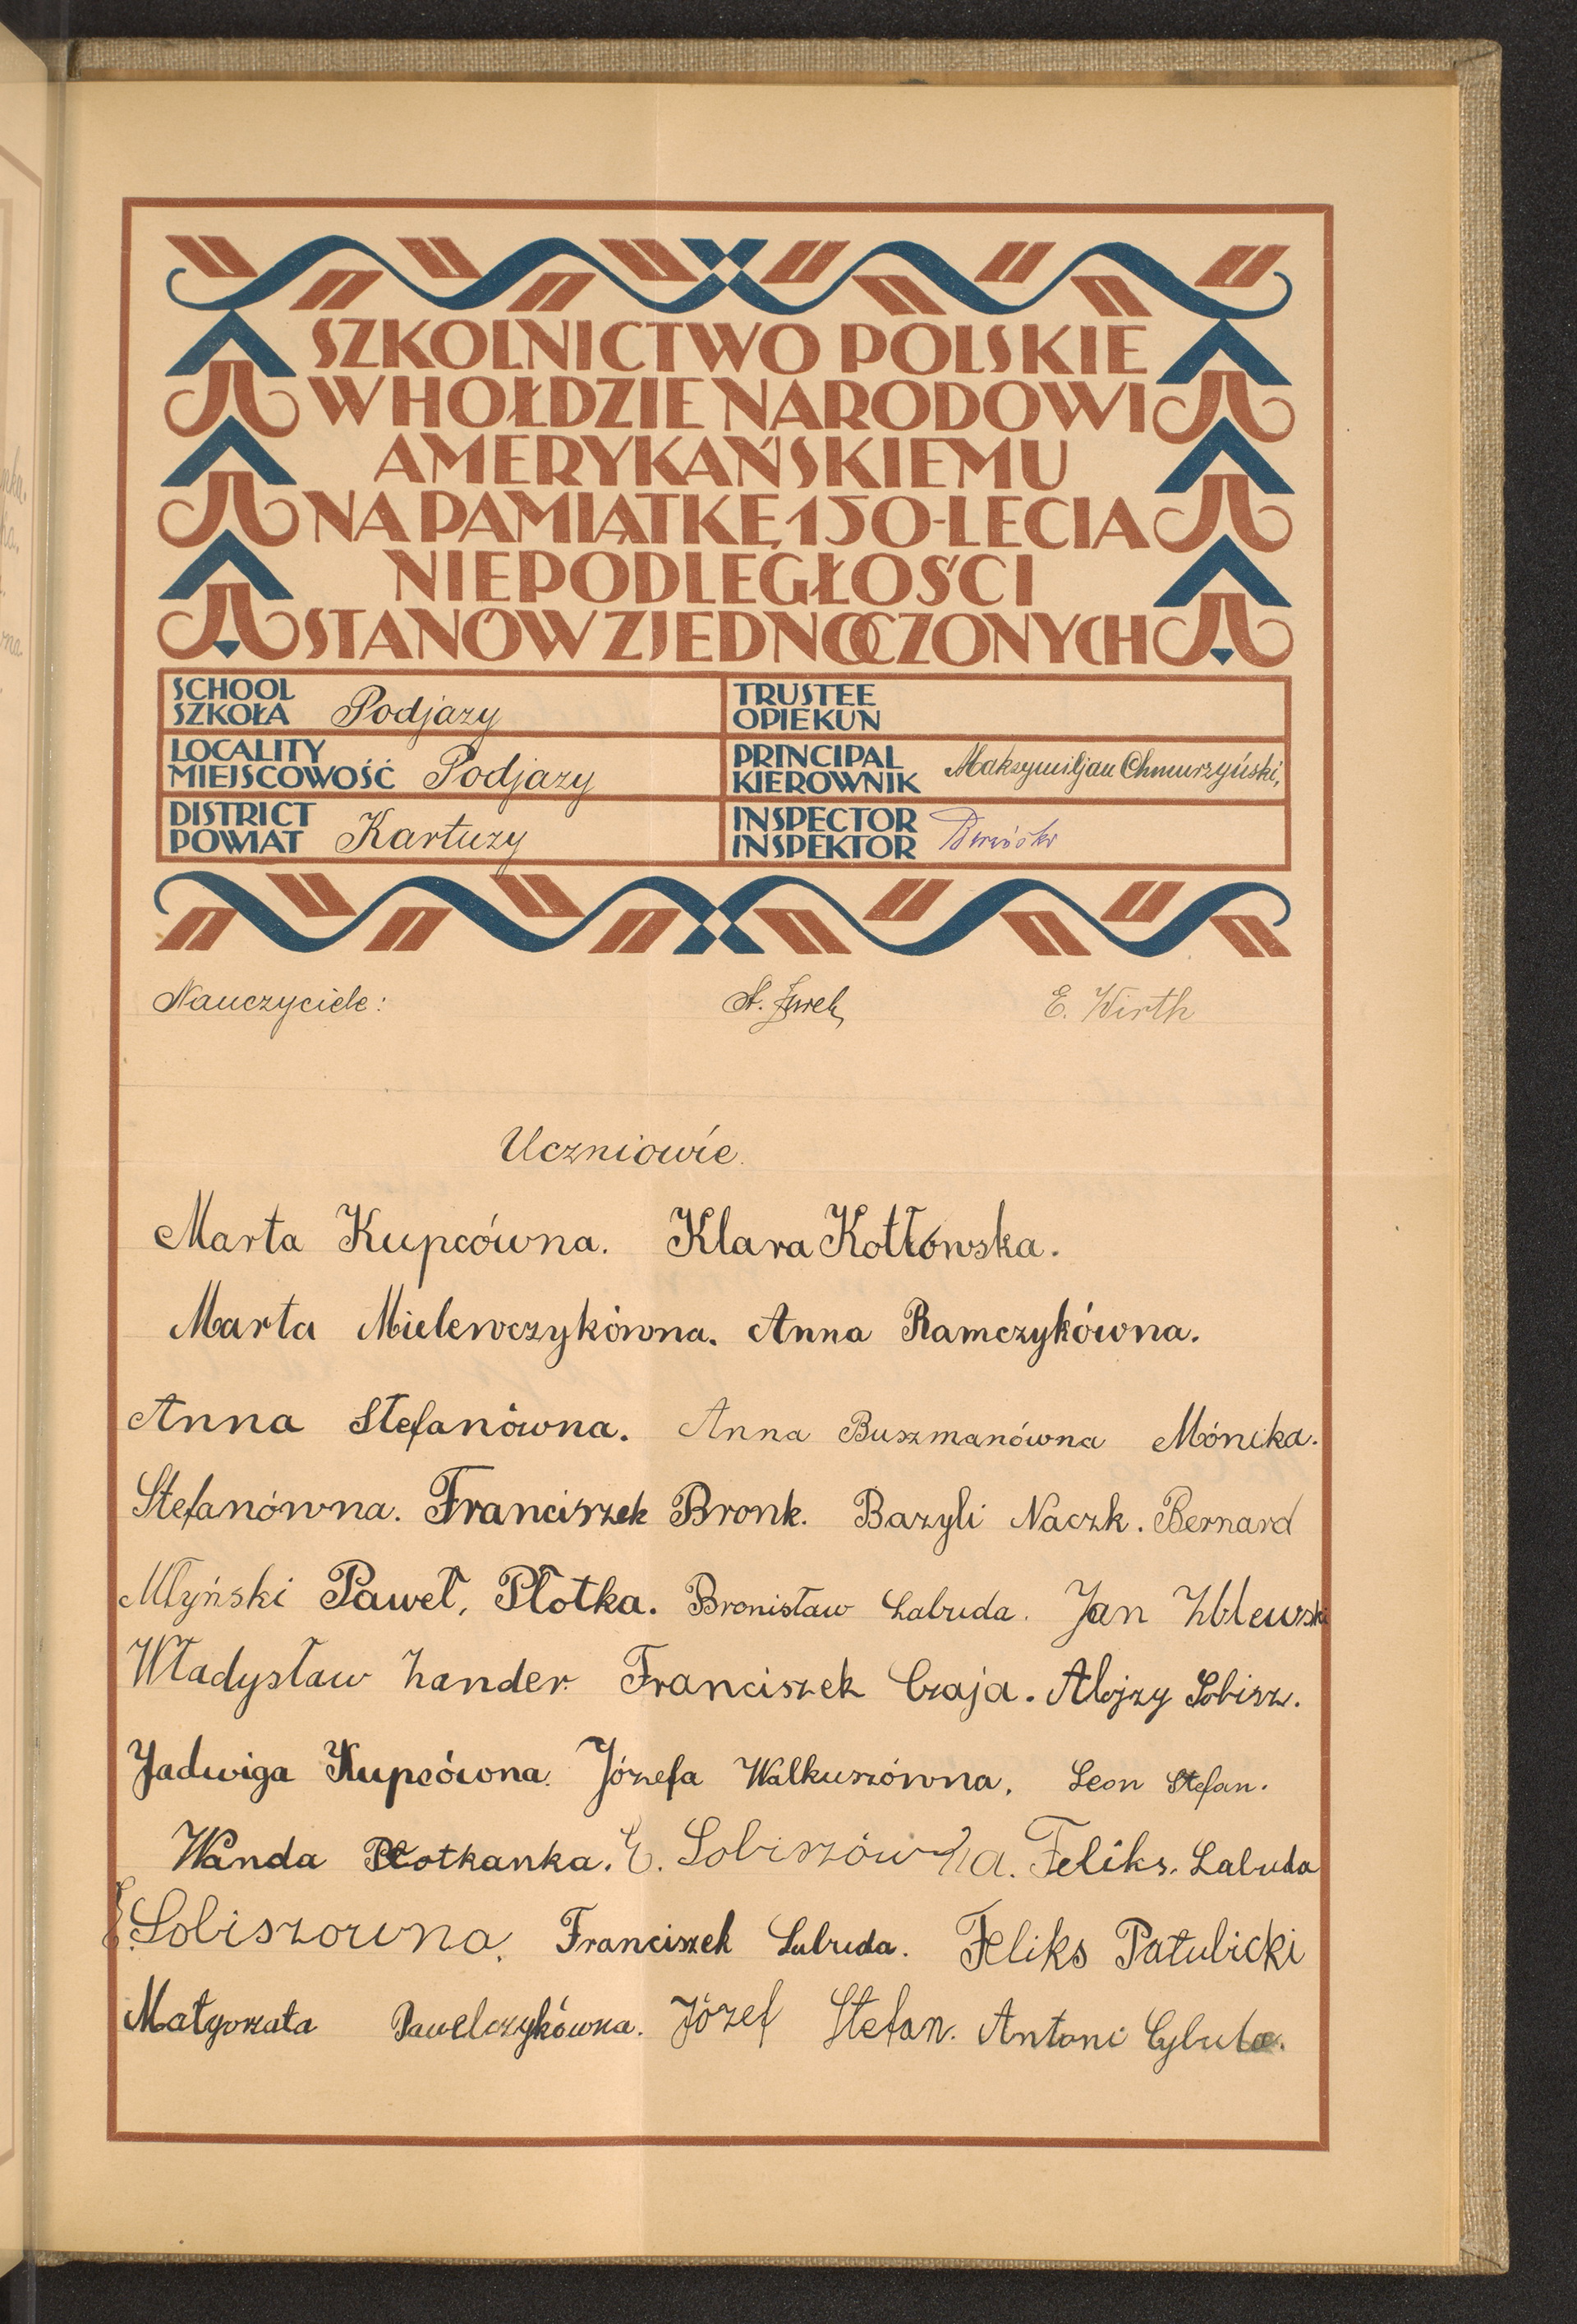 SZKOLNICTWO POLSKIE
W HOŁDZIE NARODOWI
AMERYKAŃSKIEMU
NA PAMIĄTKĘ 150-LECIA
NIEPODLEGŁOŚCI
STANÓW ZJEDNOCZONYCH
SCHOOL
SZKOŁA Podjazy
TRUSTEE
OPIEKUN
LOCALITY
MIEJSCOWOŚĆ Podjazy
PRINCIPAL
KIEROWNIK Maksymiljan Chmurzyński,
DISTRICT
POWIAT Kartuzy
INSPECTOR
INSPEKTOR
Nauczyciele: St. Żurek E. Wirth
Uczniowie.
Marta Kupcówna. Klara Kotłowska.
Marta Mielewczykówna. Anna Ramczykówna.
Anna Stefanówna. Anna Buszmanówna Mónika.
Stefanówna. Franciszek Bronk. Bazyli Naczk. Bernard
Młyński Paweł, Płotka. Bronisław Labuda. Jan Zblewski
Władysław Zander. Franciszek Czaja. Alojzy Sobisz.
Jadwiga Kupcówna. Józefa Walkuszówna. Leon Stefan.
Wanda Płotkanka. E. Sobiszówna. Feliks. Labuda
E. Sobiszowna. Franciszek Labuda. Feliks Patubicki
Małgorzata Pawelczykówna. Józef Stefan. Antoni Cybula.